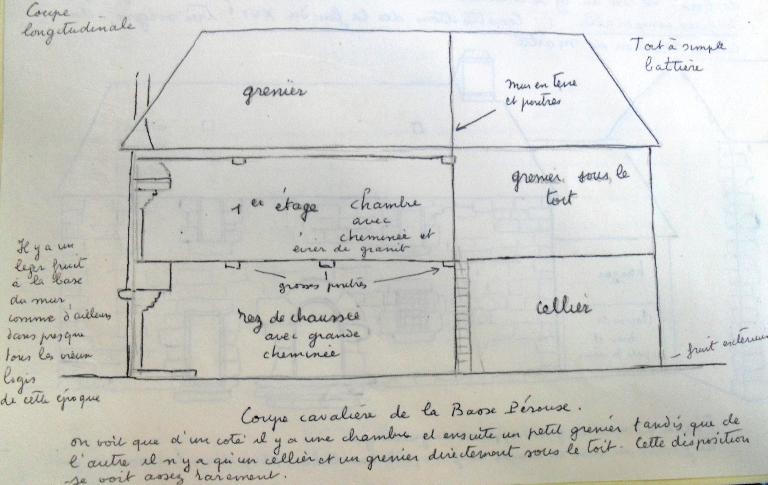 Coupe
longitudinale
Toit à simple
battière
grenier
mur en terre
et poutres
1er étage
chambre
avec
cheminée et
évier de granit
grenier sous le
toit
grosses poutres
Il y a un
léger fruit
à la base
du mur
comme d'ailleurs
dans presque
tous les vieux
logis
de cette époque
rez de chaussée
avec grande
cheminée
cellier
fruit extérieur
Coupe cavalière de la Basse Pérouse.
on voit que d'un coté il y a une chambre et ensuite un petit grenier tandis que de
l'autre il n'y a qu'un cellier et un grenier directement sous le toit. Cette disposition
se voit assez rarement.